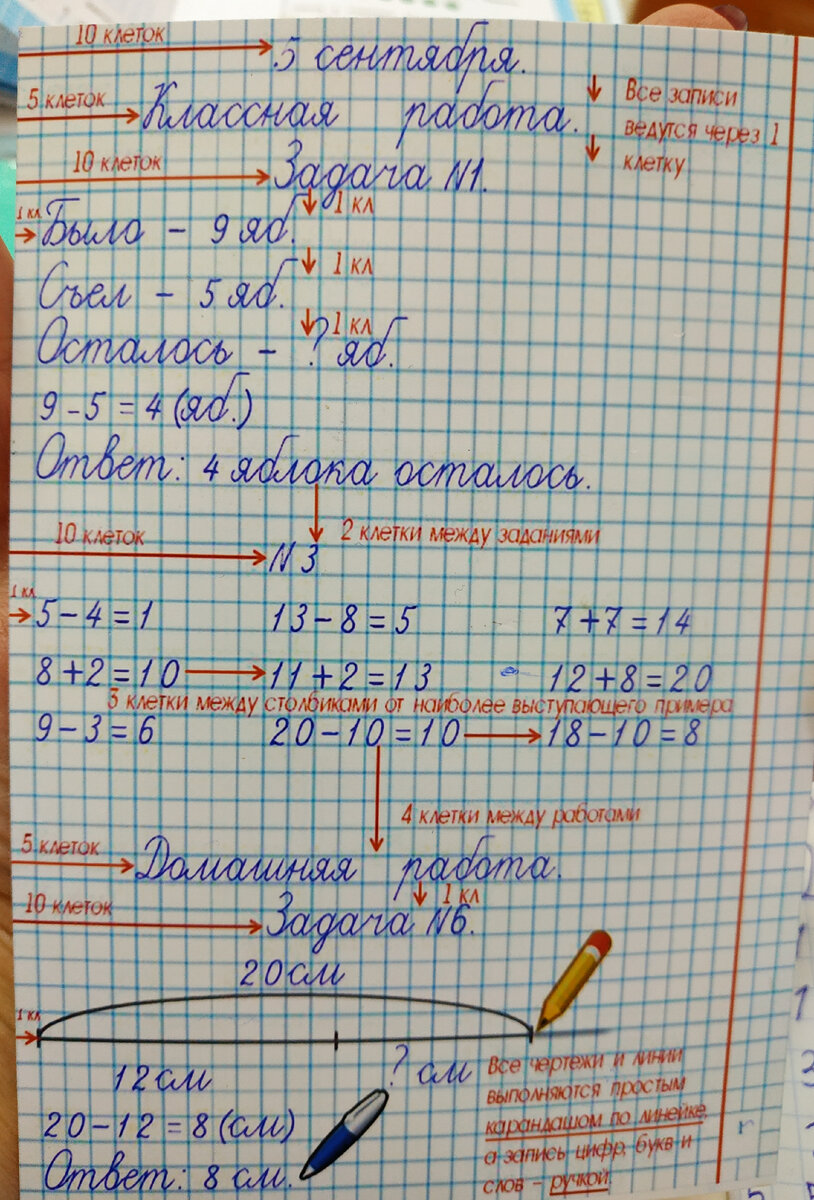 10 клеток 5 сентября.
5 клеток Классная работа. Все записи
ведутся через 1
клетку
10 клеток Задача N1.
1 кл
1 кл. Было - 9 яб.
1 кл
Съел - 5 яб.
1 кл
Осталось - ? яб.
9 - 5 = 4 (яб.)
Ответ: 4 яблока осталось.
2 клетки между заданиями
10 клеток N 3
1 кл 5 - 4 = 1 13 - 8 = 5 7 + 7 = 14
8 + 2 = 10 11 + 2 = 13 12 + 8 = 20
3 клетки между столбиками от наиболее выступающего примера
9 - 3 = 6 20 - 10 = 10 18 - 10 = 8
4 клетки между работами
5 клеток Домашняя работа.
1 кл
10 клеток Задача N6.
20 см
1 кл
12 см ? см
20 - 12 = 8 (см)
Ответ: 8 см.
Все чертежи и линии
выполняются простым
карандашом по линейке,
а запись цифр, букв и
слов - ручкой.